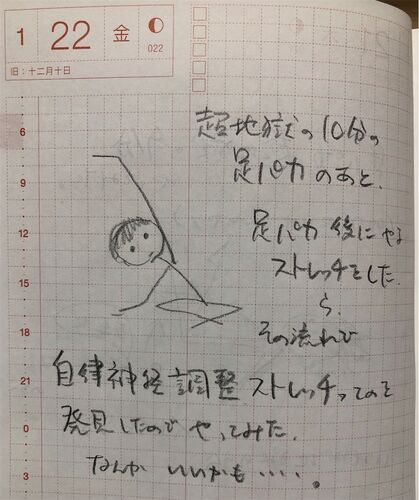 1 22 金
022
旧：十二月十日
6
9
12
13
16
18
21
0
3
超地獄の10分の
足パカのあと、
足パカ後にやる
ストレッチをした
ら、
その流れで
自律神経調整ストレッチってのを
発見したのでやってみた。
なんかいいかも・・・・。